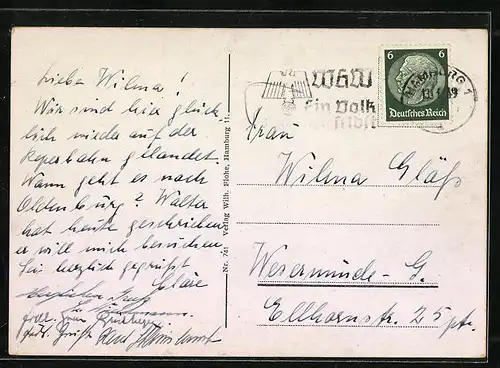 Liebe Wilma!
Wir sind hier glück
lich wieder auf der
Reperbahn gelandet.
Wann geht es nach
Oldenburg? Walter
hat heute geschrieben
er will mich besuchen
Sei herzlich gegrüsst
Kläre
Herzlichen Gruß
Nr. 741 Verlag Wilh. Flohr, Hamburg 11.
WHW
Ein Volk
hilft sich selbst
6 6
Deutsches Reich
HAMBURG 1
Frau
Wilma Gläß
Wesermünde-G.
Ellhornstr. 25 ptr.